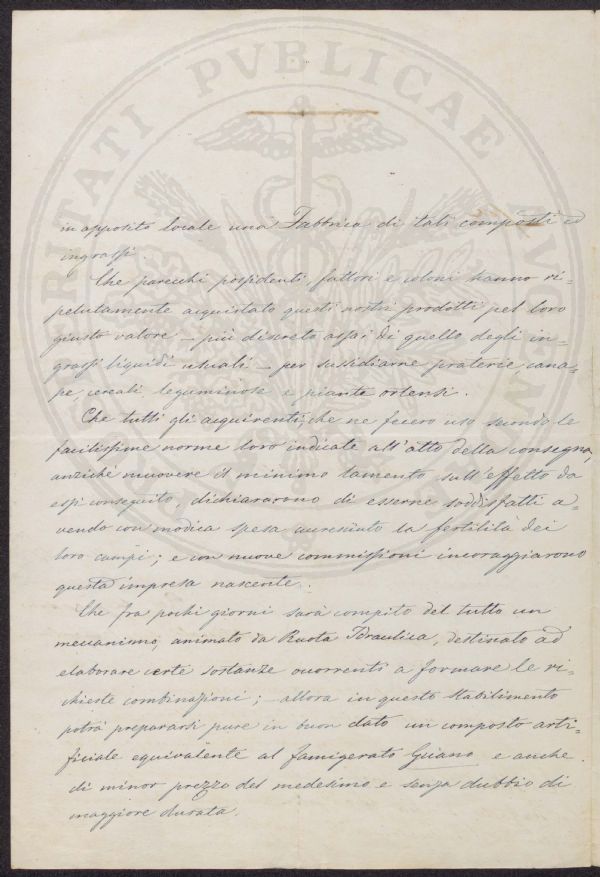 in apposito locale una Fabbrica di tali composti ed
ingrassi.
Che parecchi possidenti fattori e coloni hanno ri-
petutamente acquistato questi nostri prodotti pel loro
giusto valore – più discreto assai di quello degli in-
grassi liquidi usuali – per sussidiarne praterie cana-
pe, cereali leguminose e piante ortensi.
Che tutti gli acquirenti, che ne fecero uso secondo le
facilissime norme loro indicate all'atto della consegna,
anziché muovere il minimo lamento sull'effetto da
essi conseguito, dichiararono di esserne soddisfatti a-
vendo con modica spesa accresciuto la fertilità dei
loro campi; e con nuove commissioni incoraggiarono
questa impresa nascente.
Che fra pochi giorni sarà compito del tutto un
meccanismo, animato da Ruota Idraulica, destinato ad
elaborare certe sostanze occorrenti a formare le ri-
chieste combinazioni; – allora in questo Stabilimento
potrà prepararsi pure in buon dato un composto arti-
ficiale equivalente al famigerato Guano e anche
di minor prezzo del medesimo e senza dubbio di
maggiore durata.
PVBLICAE